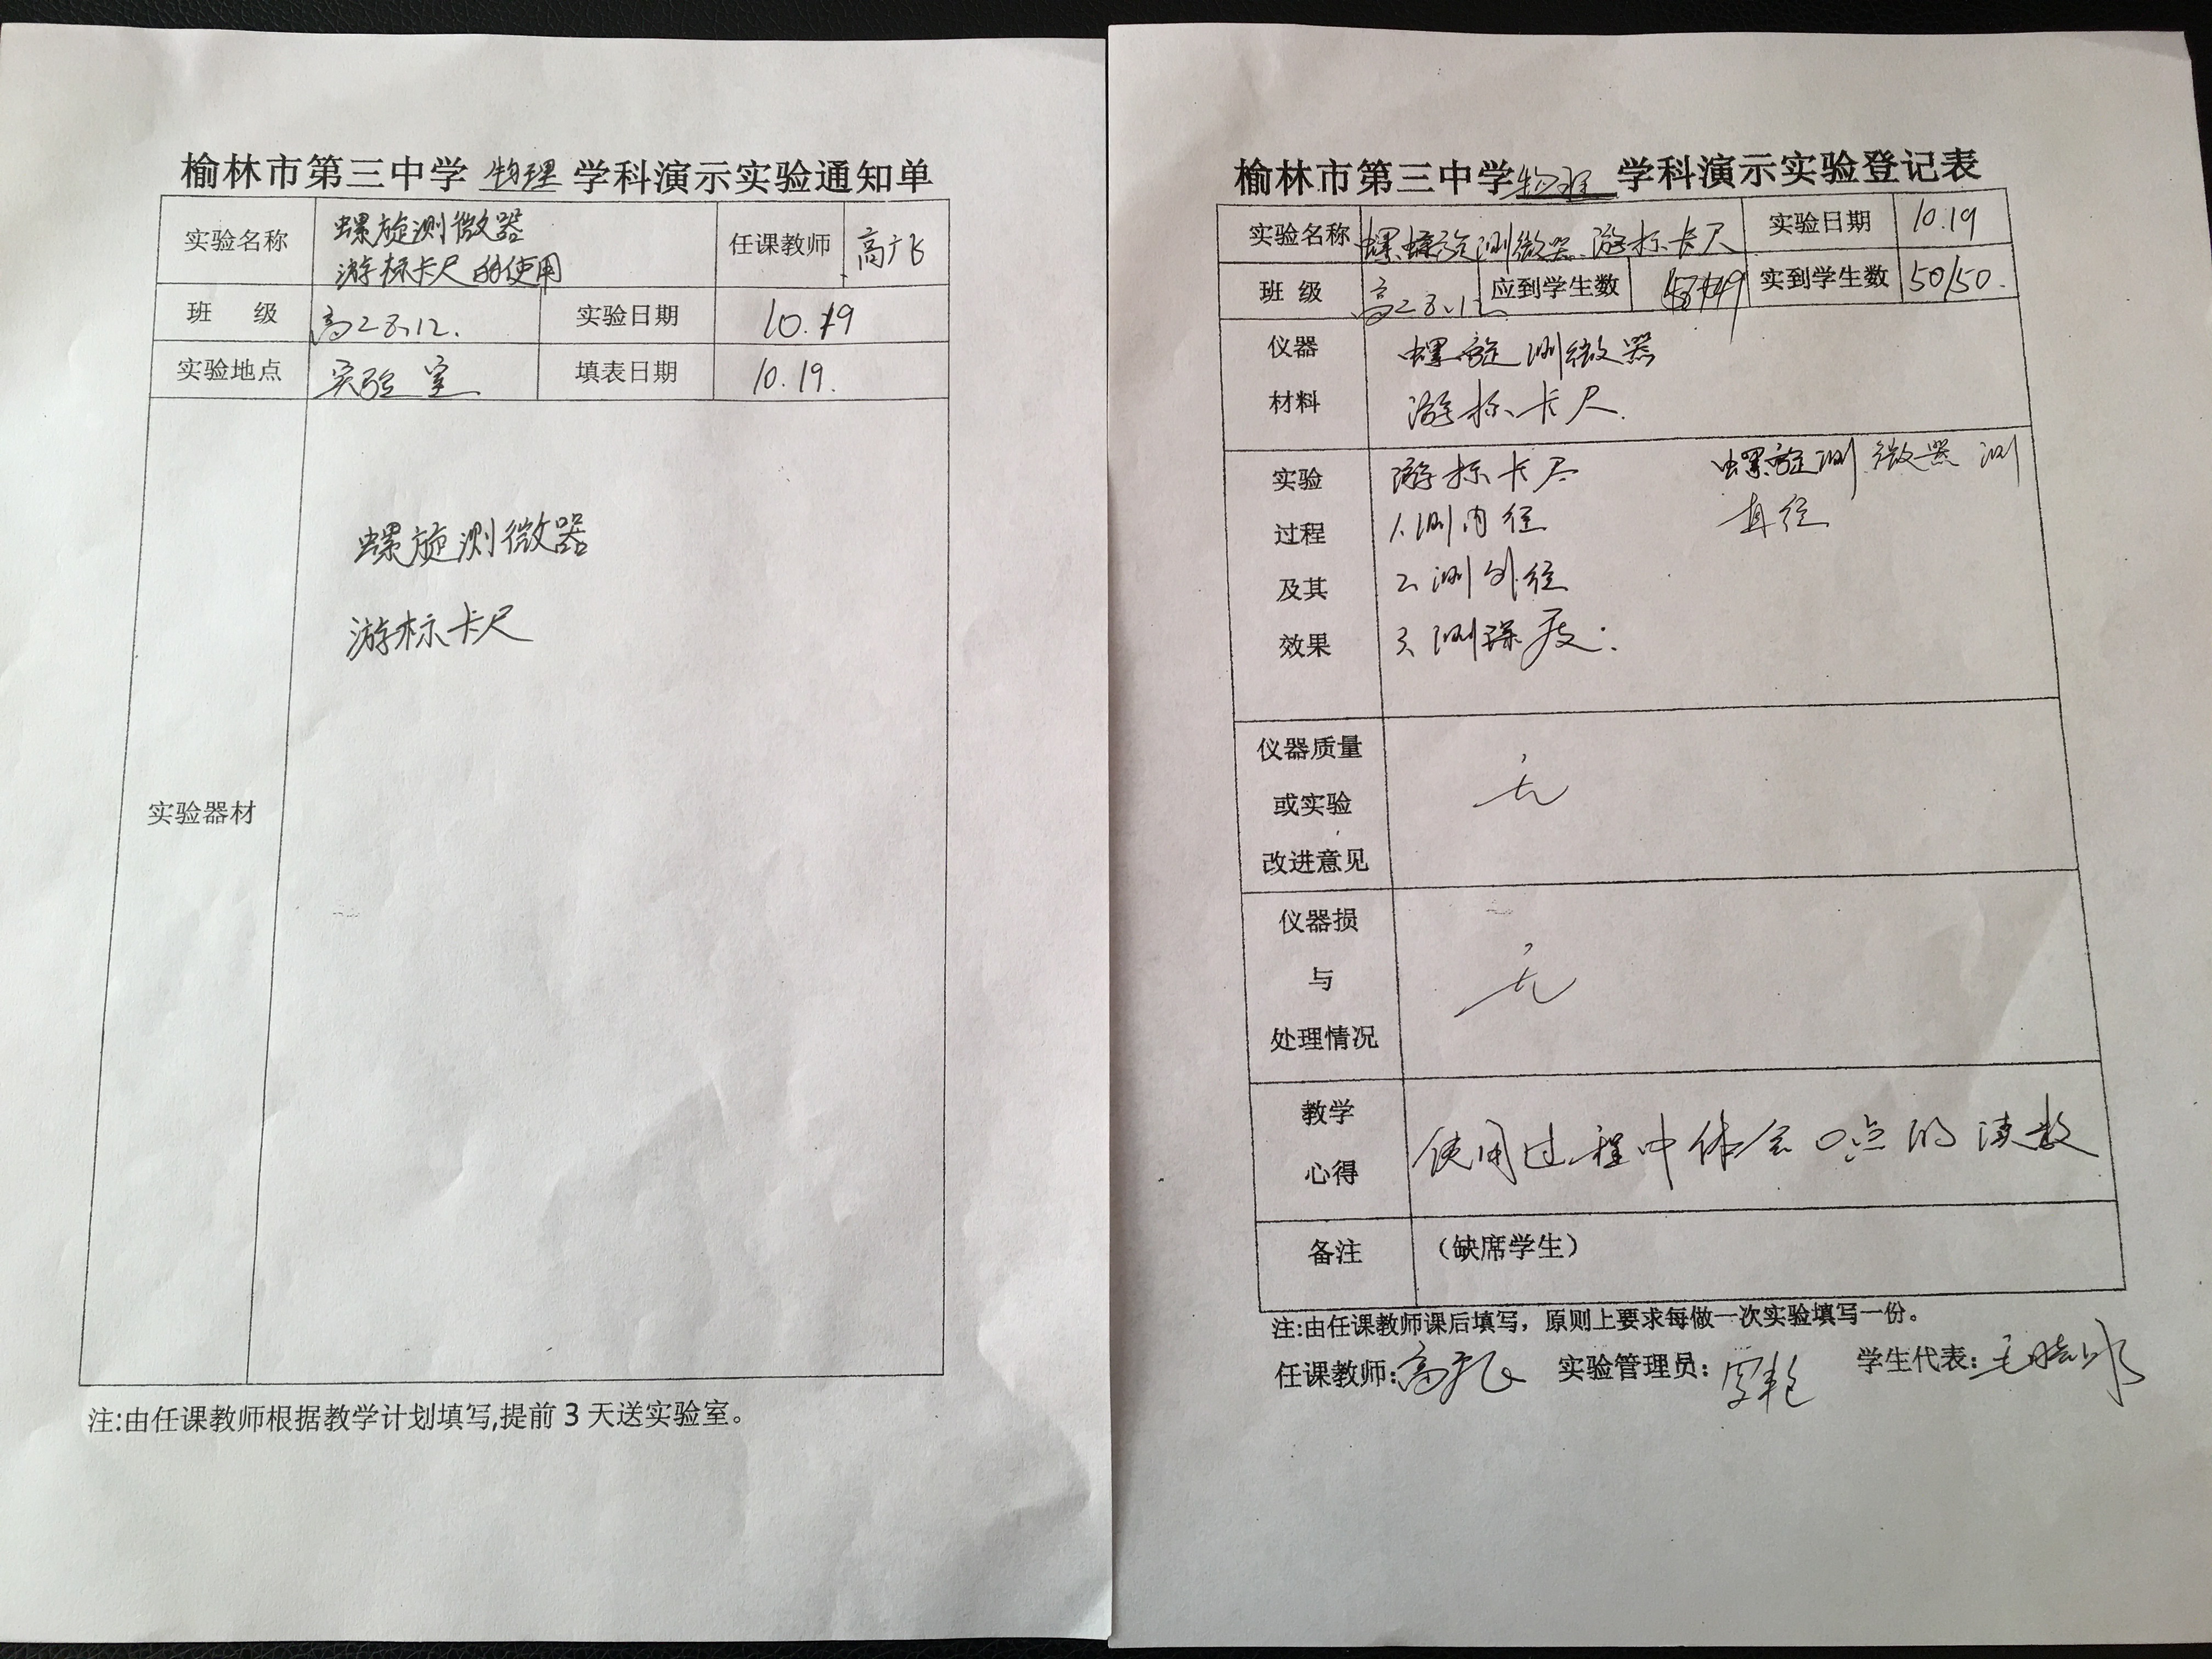 榆林市第三中学 物理 学科演示实验通知单
实验名称 螺旋测微器 任课教师 高广飞
游标卡尺的使用
班 级 高二8、12. 实验日期 10.19
实验地点 实验室 填表日期 10.19.
实验器材
螺旋测微器
游标卡尺
注:由任课教师根据教学计划填写,提前3天送实验室。
榆林市第三中学 物理 学科演示实验登记表
实验名称 螺旋测微器 游标卡尺 实验日期 10.19
班 级 高二8、12 应到学生数 实到学生数 50/50.
仪器 螺旋测微器
材料 游标卡尺.
实验 游标卡尺 螺旋测微器测
过程 1.测内径 直径
及其 2.测外径
效果 3、测深度.
仪器质量
或实验 无
改进意见
仪器损
与 无
处理情况
教学
心得 使用过程中体会0点的读数
备注 （缺席学生）
注:由任课教师课后填写，原则上要求每做一次实验填写一份。
任课教师:高广飞 实验管理员: 学生代表: